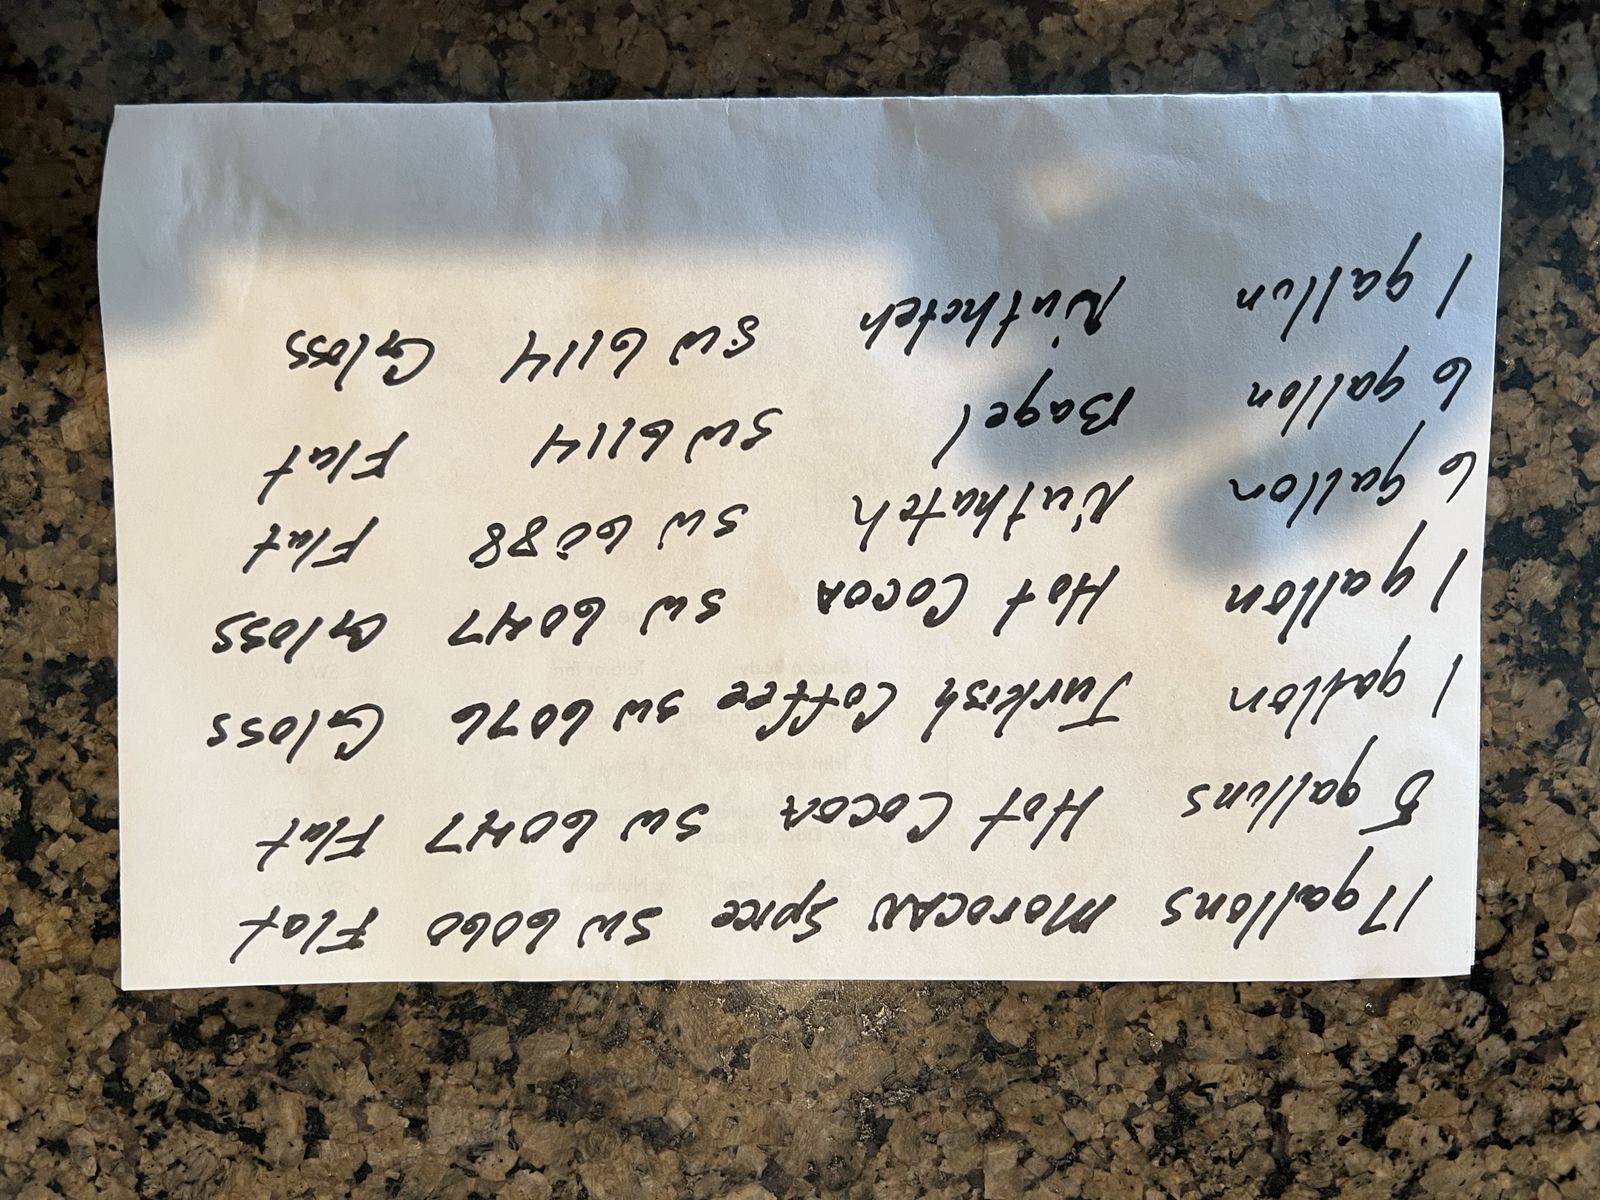 17 gallons Morocan Spice SW 6060 Flat
5 gallons Hot Cocoa SW 6047 Flat
1 gallon Turkish Coffee SW 6076 Gloss
1 gallon Hot Cocoa SW 6047 Gloss
6 gallon Nuthatch SW 6088 Flat
6 gallon Bagel SW 6114 Flat
1 gallon Nuthatch SW 6114 Gloss